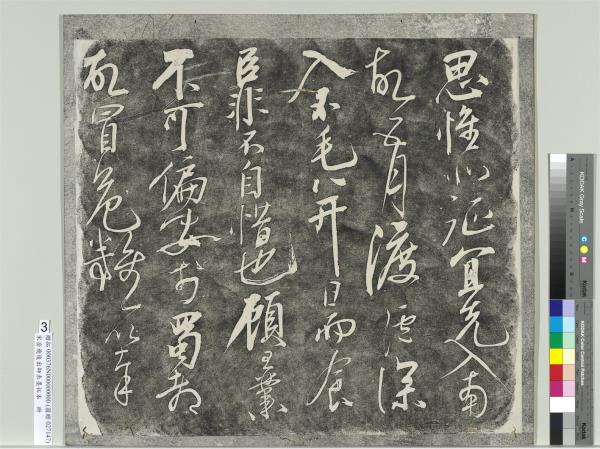 思惟北征宜先入南
故五月渡瀘深
入不毛并日而食
臣非不自惜也顧王業
不可偏安於蜀都
故冒危難以奉
3
贈拓 000376N000000000
宋岳飛後出師表墨拓本 冊
KODAK Gray Scale
C Y M
Kodak
KODAK Color Control Patches
Kodak